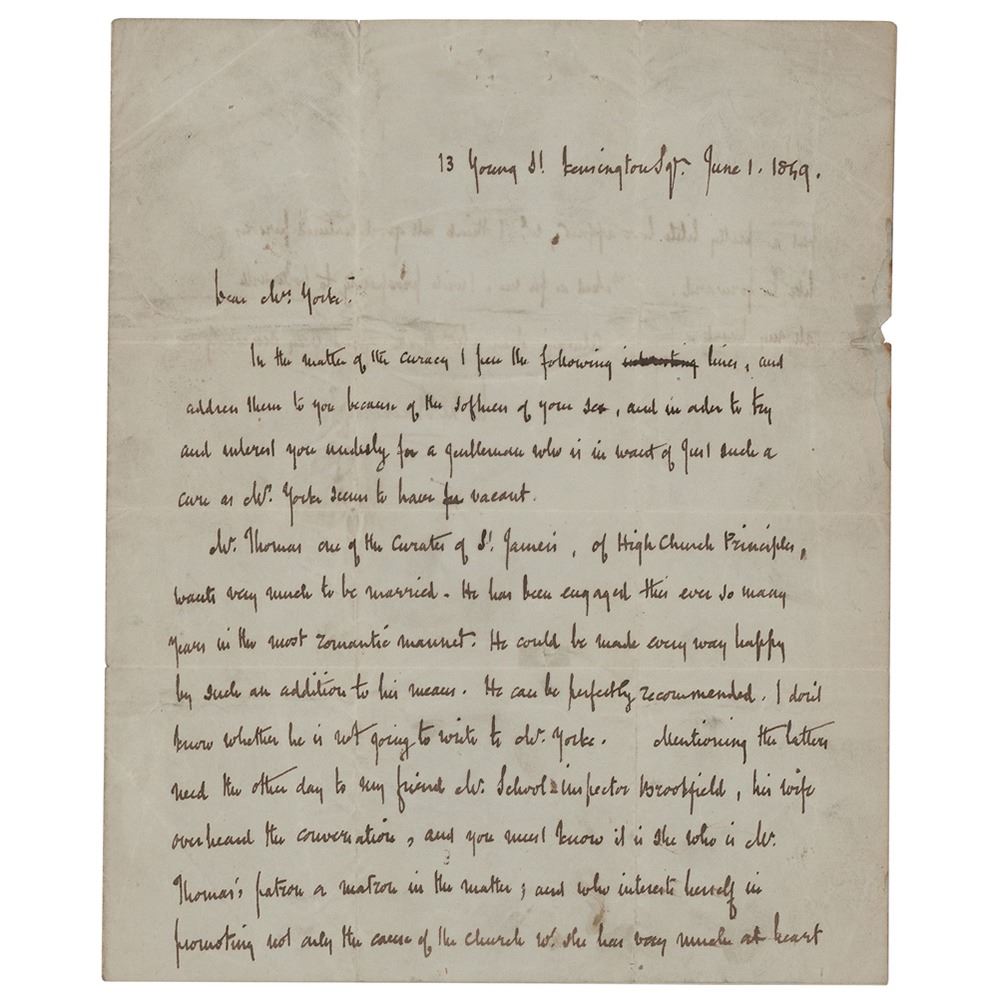 13 Young St. Kensington Sqr. June 1. 1849.
Dear Mrs. Yorke.
In the matter of the curacy I pen the following interesting lines, and
address them to you because of the softness of your sex, and in order to try
and interest you undesly for a gentleman who is in want of just such a
cure as Mr. Yorke seems to have vacant.
Mr. Thomas one of the Curates of St. James's, of High Church Principles,
wants very much to be married. He has been engaged this ever so many
years in the most romantic manner. He could be made every way happy
by such an addition to his means. He can be perfectly recommended. I don't
know whether he is not going to write to Mr. Yorke. Mentioning the latters
need the other day to my friend Mr. School-inspector Brookfield, his wife
overheard the conversation, and you must know it is she who is Mr.
Thomas's patron or matron in the matter; and who interests herself in
promoting not only the cause of the church wh. she has very much at heart